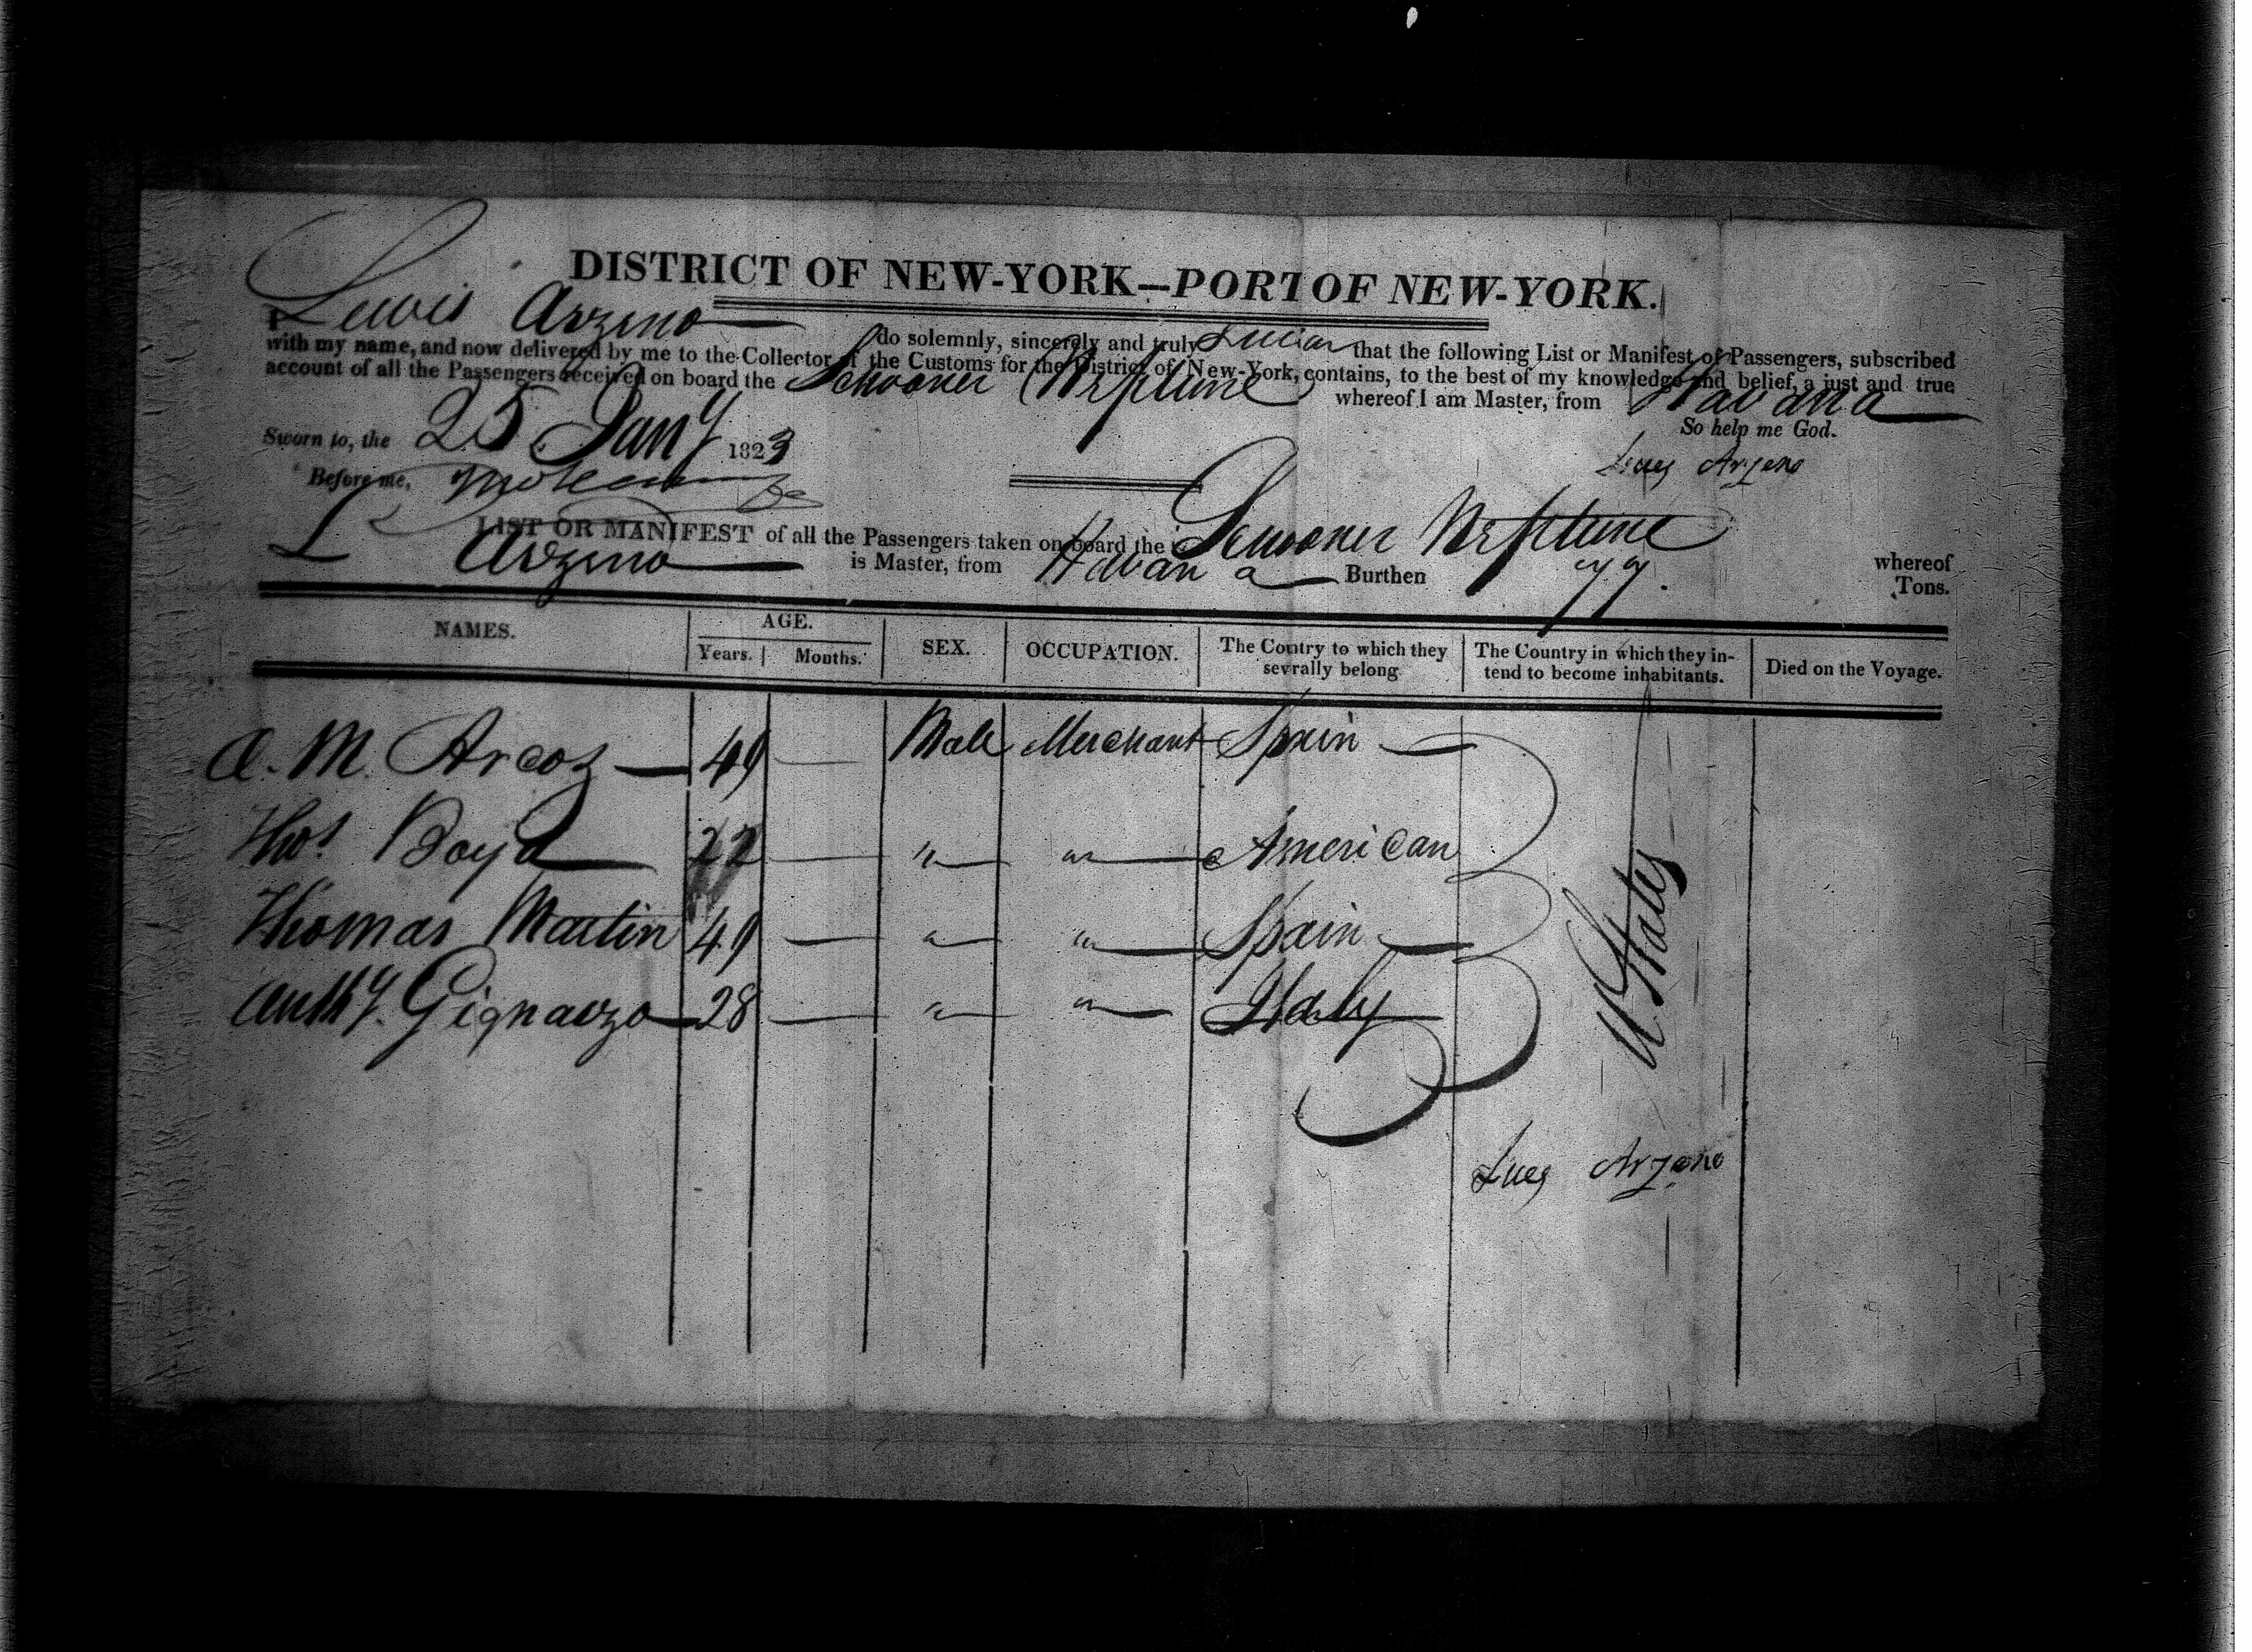 DISTRICT OF NEW-YORK—PORT OF NEW-YORK.
I Lewis Arzeno do solemnly, sincerely and truly that the following List or Manifest of Passengers, subscribed
with my name, and now delivered by me to the Collector of the Customs for the District of New-York, contains, to the best of my knowledge and belief, a just and true
account of all the Passengers received on board the Schooner Neptune whereof I am Master, from Havana
So help me God.
Sworn to, the 25 Jany 1823
Luez Arzeno
Before me,
LIST OR MANIFEST of all the Passengers taken on board the Schooner Neptune whereof
L Arzeno is Master, from Havana Burthen 77. Tons.
NAMES. AGE. Years. Months. SEX. OCCUPATION. The Contry to which they sevrally belong. The Country in which they intend to become inhabitants. Died on the Voyage.
A. M. Arcos 49 Male Merchant Spain
Thos Boyd 22 " " American
Thomas Martin 49 " " Spain
Anthy. Gignarzo 28 " " Italy
U States
Luez Arzeno